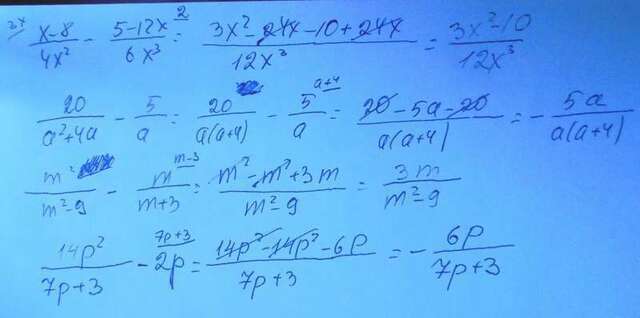 3x x-8/4x² - 5-12x/6x³ ² = 3x²-24x-10+24x/12x³ = 3x²-10/12x³
20/a²+4a - 5/a = 20/a(a+4) - 5^(a+4)/a = 20-5a-20/a(a+4) = - 5a/a(a+4)
m²/m²-9 - m^(m-3)/m+3 = m²-m²+3m/m²-9 = 3m/m²-9
14p²/7p+3 - 2p^(7p+3) = 14p²-14p²-6p/7p+3 = - 6p/7p+3